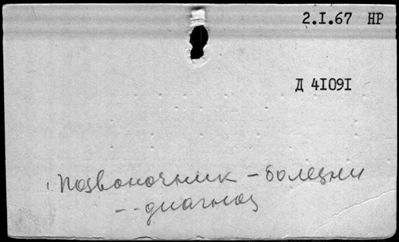 2.I.67 НР
Д 4I09I
Позвоночник - болезни
-- диагноз